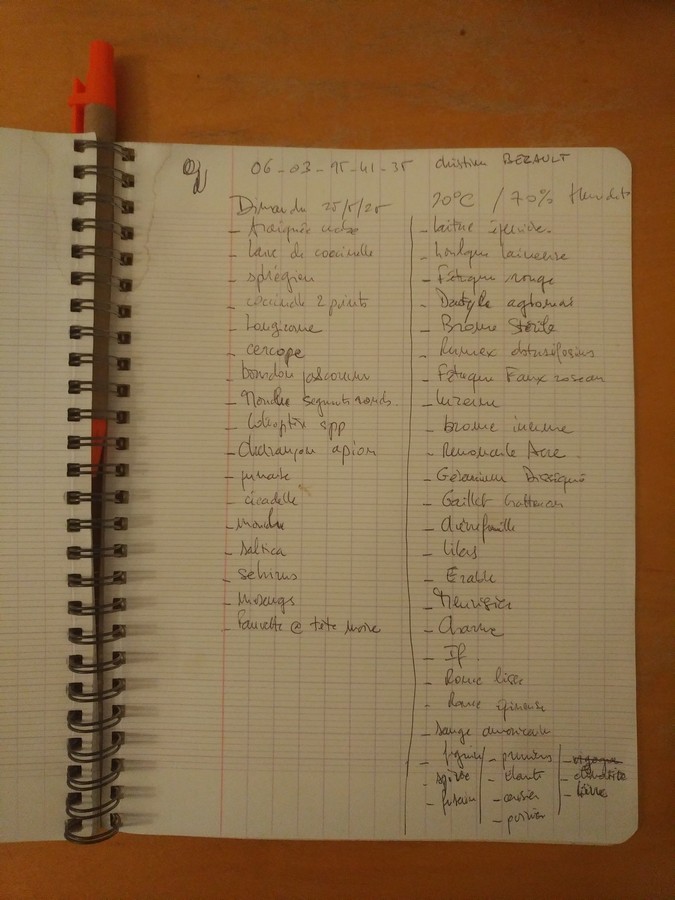 06-03-95-41-35 christine BEZAULT
Dimanche 25/5/25
- Araignée
- Larve de coccinelle
- coccinelle 2 points
- Longicorne
- cercope
- bourdon
- Mouche
- Coléoptère spp
- Charançon apion
- punaise
- cicadelle
- mouche
- saltica
- sehirus
- mésange
- Fauvette @ tête noire
20°C / 70% Humidité
- Laitue épineuse.
- houlque laineuse
- Fétuque rouge
- Dactyle aggloméré
- Brome Stérile
- Rumex obtusifolius
- Fétuque Faux roseau
- Luzerne
- brome inerme
- Renoncule Acre
- Géranium Disséqué
- Gaillet Gratteron
- Quintefeuille
- Lilas
- Erable
- Merisier
- Charme
- If.
- Ronce lisse
- Ronce épineuse
- Sauge
- figuier
- spirée
- fusain
- pruniers
- cerisier
- poirier
- clématite
- lierre